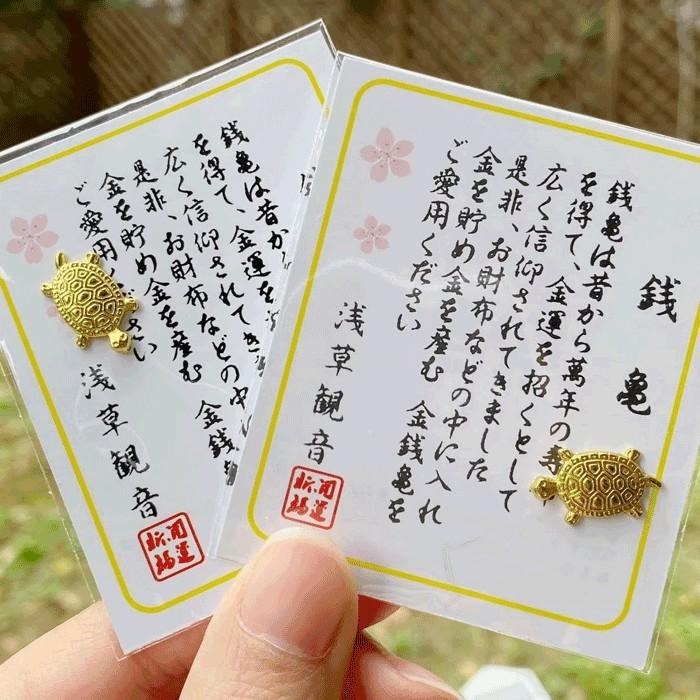 銭亀
銭亀は昔から萬年の寿
を得て、金運を招くとして
広く信仰されてきました
是非、お財布などの中に入れ
金を貯め金を産む 金銭亀を
ご愛用ください
浅草観音
開運
招福
銭亀は昔から
を得て、金運を
広く信仰されてき
是非、お財布などの中
金を貯め金を産む 金銭
ご愛用ください
浅草観音
開運
招福